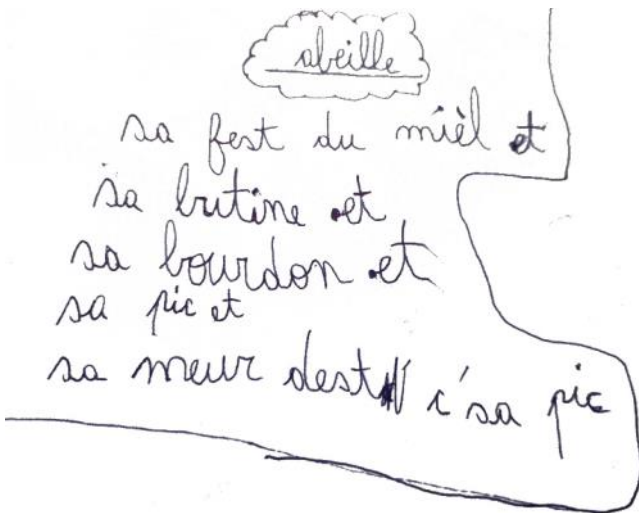 abeille
sa fest du mièl et
sa butine et
sa bourdon et
sa pic et
sa meur dest i'sa pic